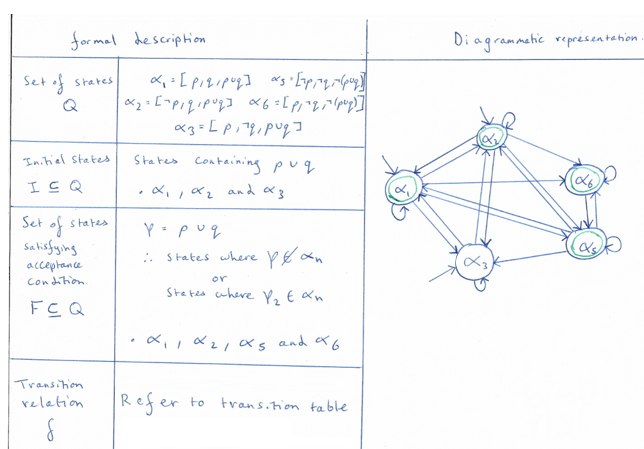 formal description
Diagrammatic representation.
Set of states
Q
α₁ = [p, q, p∪q] α₅ = [¬p, ¬q, ¬(p∪q)]
α₂ = [¬p, q, p∪q] α₆ = [p, ¬q, ¬(p∪q)]
α₃ = [p, ¬q, p∪q]
Initial states
I ⊆ Q
States containing p ∪ q
• α₁, α₂ and α₃
Set of states
satisfying
acceptance
condition.
F ⊆ Q
Ψ = p ∪ q
∴ states where Ψ ∉ αn
or
states where Ψ₂ ∈ αn
• α₁, α₂, α₅ and α₆
Transition
relation
f
Refer to transition table
α₂
α₆
α₁
α₅
α₃